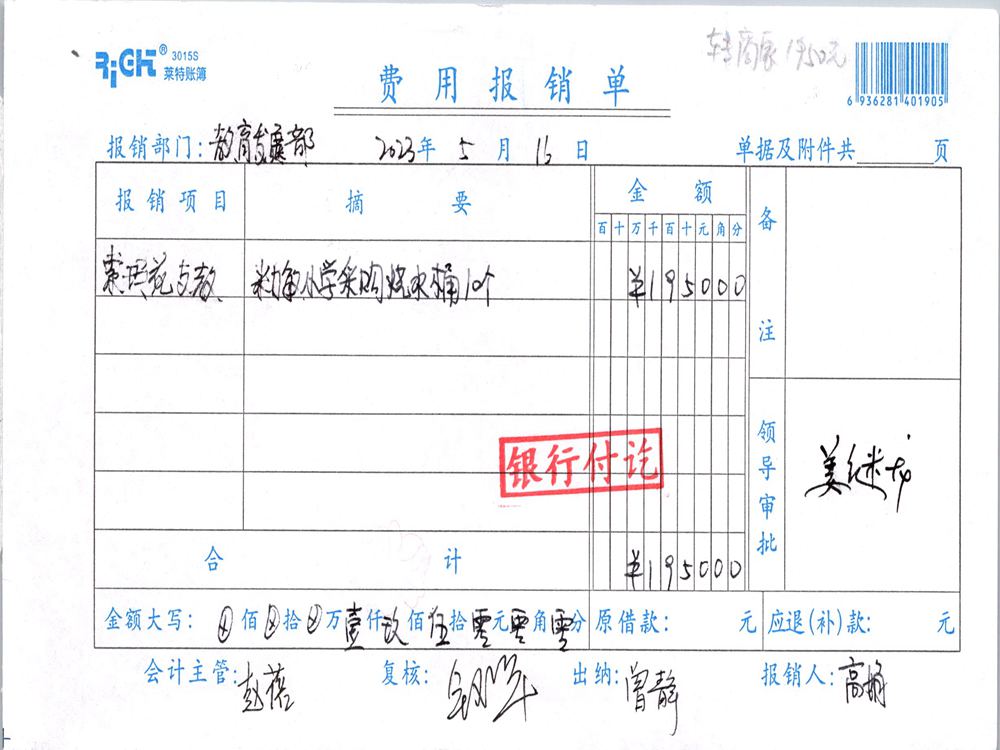 RiGHT® 3015S
莱特账簿
转商家 1950元
6 936281 401905
费用报销单
报销部门:教育发展部 2023年 5月 16日 单据及附件共 页
报销项目 摘要 金额 备注
百十万千百十元角分
小学采购烧水桶10个 ¥195000
银行付讫
领导审批 姜继龙
合计 ¥195000
金额大写: ⊗佰⊗拾⊗万壹仟玖佰伍拾零元零角零分 原借款: 元 应退(补)款: 元
会计主管:赵蓓 复核: 出纳:曾静 报销人:高娟